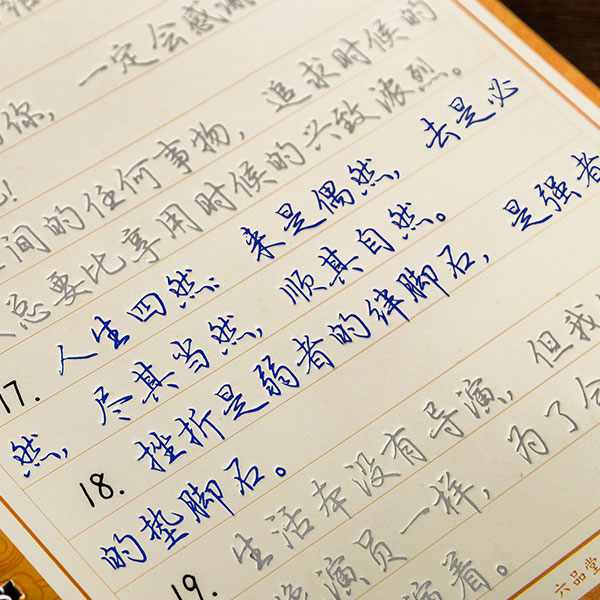 一定会感
的你，
世间的任何事物，追求时候的
总要比享用时候的兴致浓烈。
17. 人生四然：来是偶然，去是必
然，尽其当然，顺其自然。
18. 挫折是弱者的绊脚石，是强者
的垫脚石。
19. 生活本没有导演，但我
演员一样，为了合
演着。
六品堂